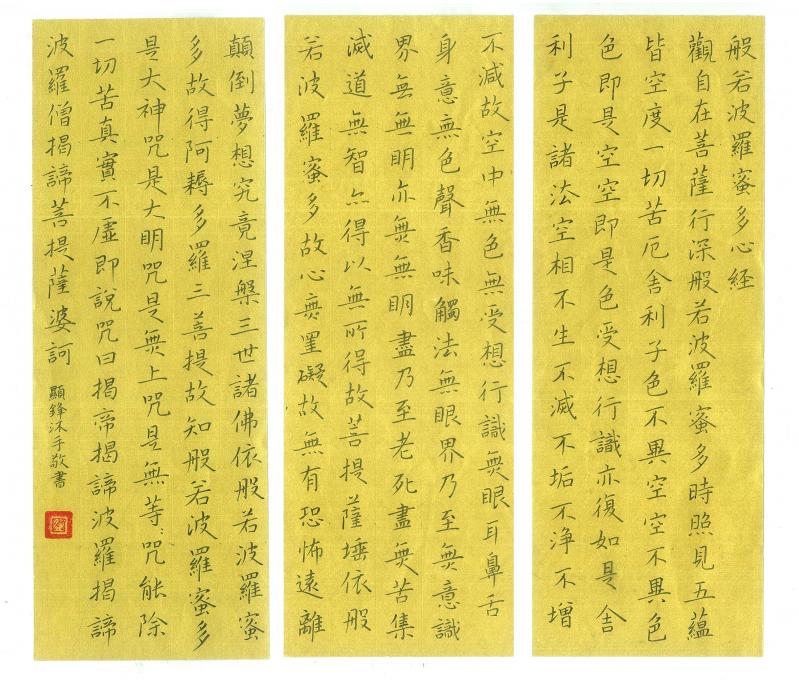 般若波羅蜜多心経
觀自在菩薩行深般若波羅蜜多時照見五蘊
皆空度一切苦厄舍利子色不異空空不異色
色即是空空即是色受想行識亦復如是舍
利子是諸法空相不生不滅不垢不淨不增
不減故空中無色無受想行識無眼耳鼻舌
身意無色聲香味觸法無眼界乃至無意識
界無無明亦無無明盡乃至老死盡無苦集
滅道無智亦得以無所得故菩提薩埵依般
若波羅蜜多故心無罣礙故無有恐怖遠離
顛倒夢想究竟涅槃三世諸佛依般若波羅蜜
多故得阿耨多羅三菩提故知般若波羅蜜多
是大神咒是大明咒是無上咒是無等〻咒能除
一切苦真實不虛即說咒曰揭帝揭諦波羅揭諦
波羅僧揭諦菩提薩婆訶
顯鋒沐手敬書